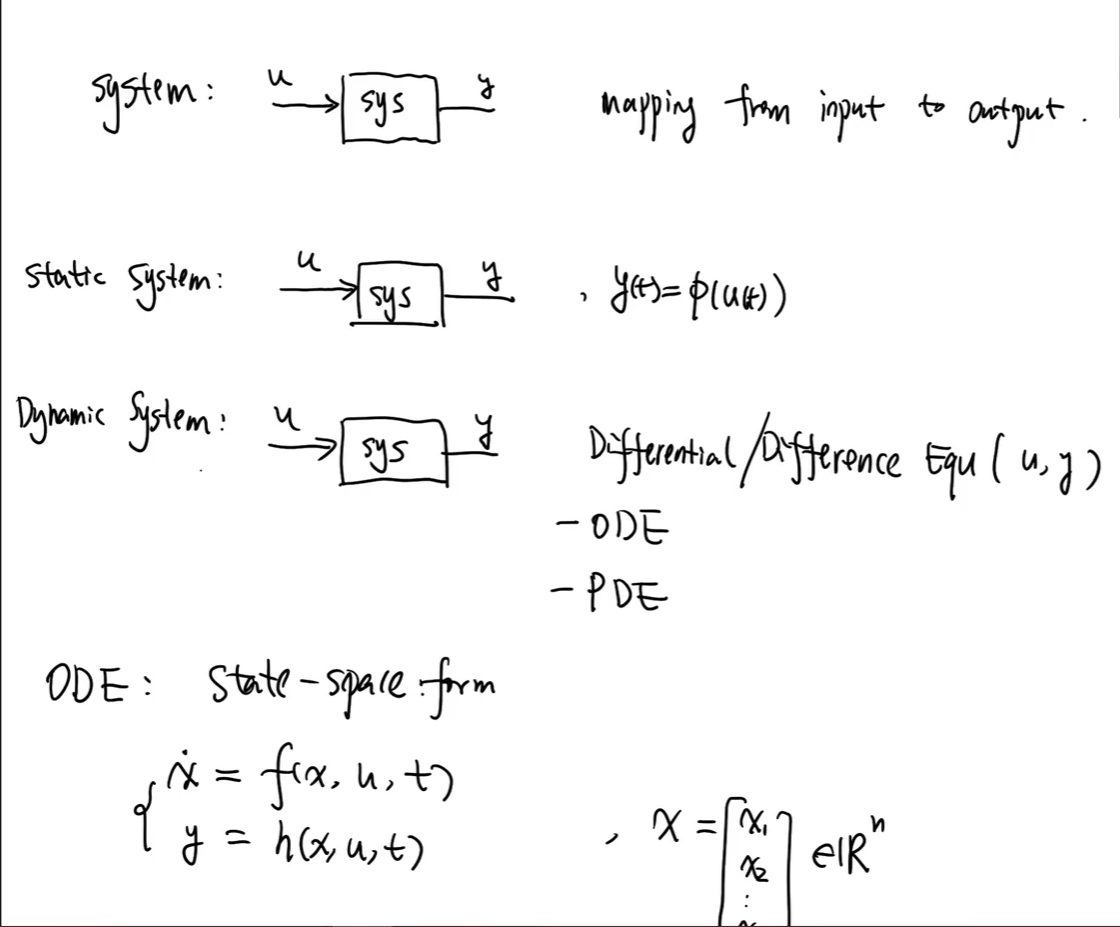 system: u sys y mapping from input to output.
Static System: u sys y , y(t)=ϕ(u(t))
Dynamic System: u sys y Differential/Difference Equ (u,y)
- ODE
- PDE
ODE: State-space form
{ ẋ = f(x, u, t)
y = h(x, u, t) , x = [x₁ x₂ ⋮ ] ∈ ℝⁿ